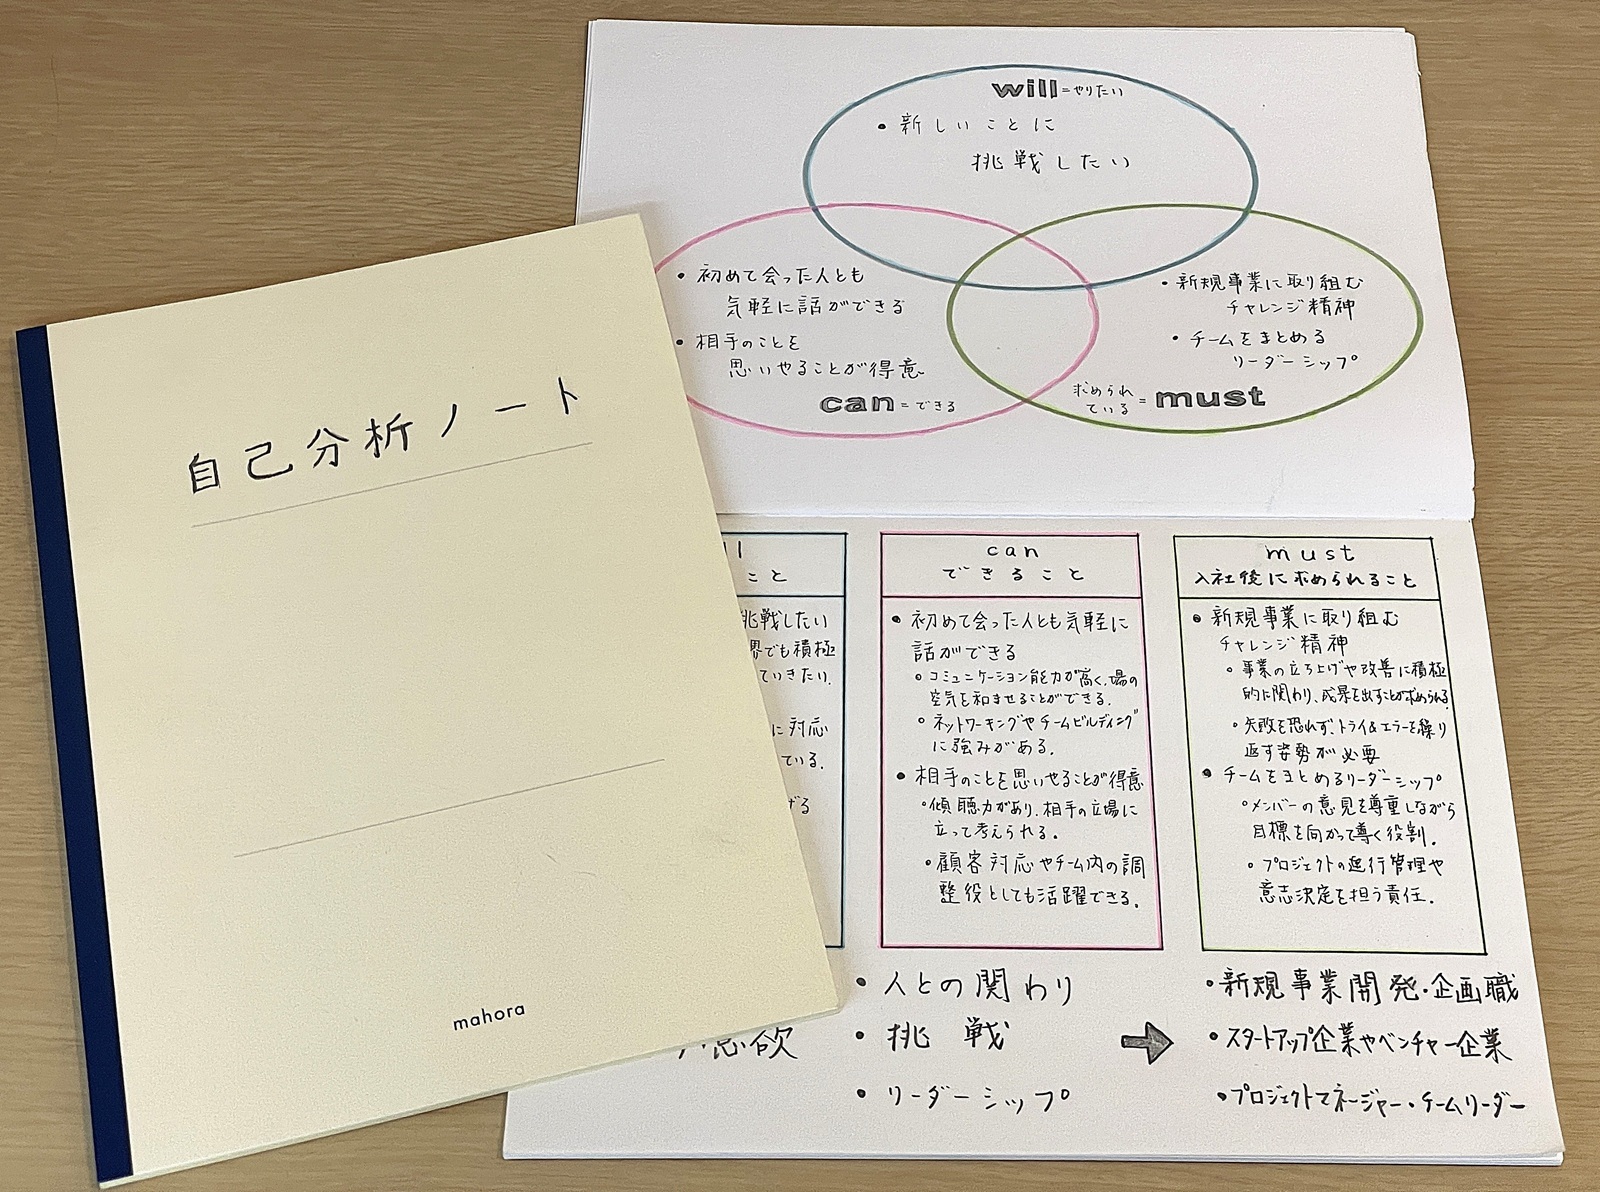 自己分析ノート
mahora
will=やりたい
• 新しいことに
挑戦したい
• 初めて会った人とも
気軽に話ができる
• 相手のことを
思いやることが得意
can=できる
• 新規事業に取り組む
チャレンジ精神
• チームをまとめる
リーダーシップ
求められ
ている=must
こと
挑戦したい
界でも積極
ていきたい.
に対応
ている.
げる
can
できること
• 初めて会った人とも気軽に
話ができる
◦ コミュニケーション能力が高く、場の
空気を和ませることができる.
◦ ネットワーキングやチームビルディング
に強みがある.
• 相手のことを思いやることが得意
◦ 傾聴力があり、相手の立場に
立って考えられる.
◦ 顧客対応やチーム内の調
整役としても活躍できる.
must
入社後に求められること
• 新規事業に取り組む
チャレンジ精神
◦ 事業の立ち上げや改善に積極
的に関わり、成果を出すことが求められる.
◦ 失敗を恐れず、トライ&エラーを繰り
返す姿勢が必要
• チームをまとめるリーダーシップ
◦ メンバーの意見を尊重しながら
目標を向かって導く役割.
◦ プロジェクトの進行管理や
意志決定を担う責任.
欲
• 人との関わり
• 挑戦
• リーダーシップ
➡
• 新規事業開発・企画職
• スタートアップ企業やベンチャー企業
• プロジェクトマネージャー・チームリーダー